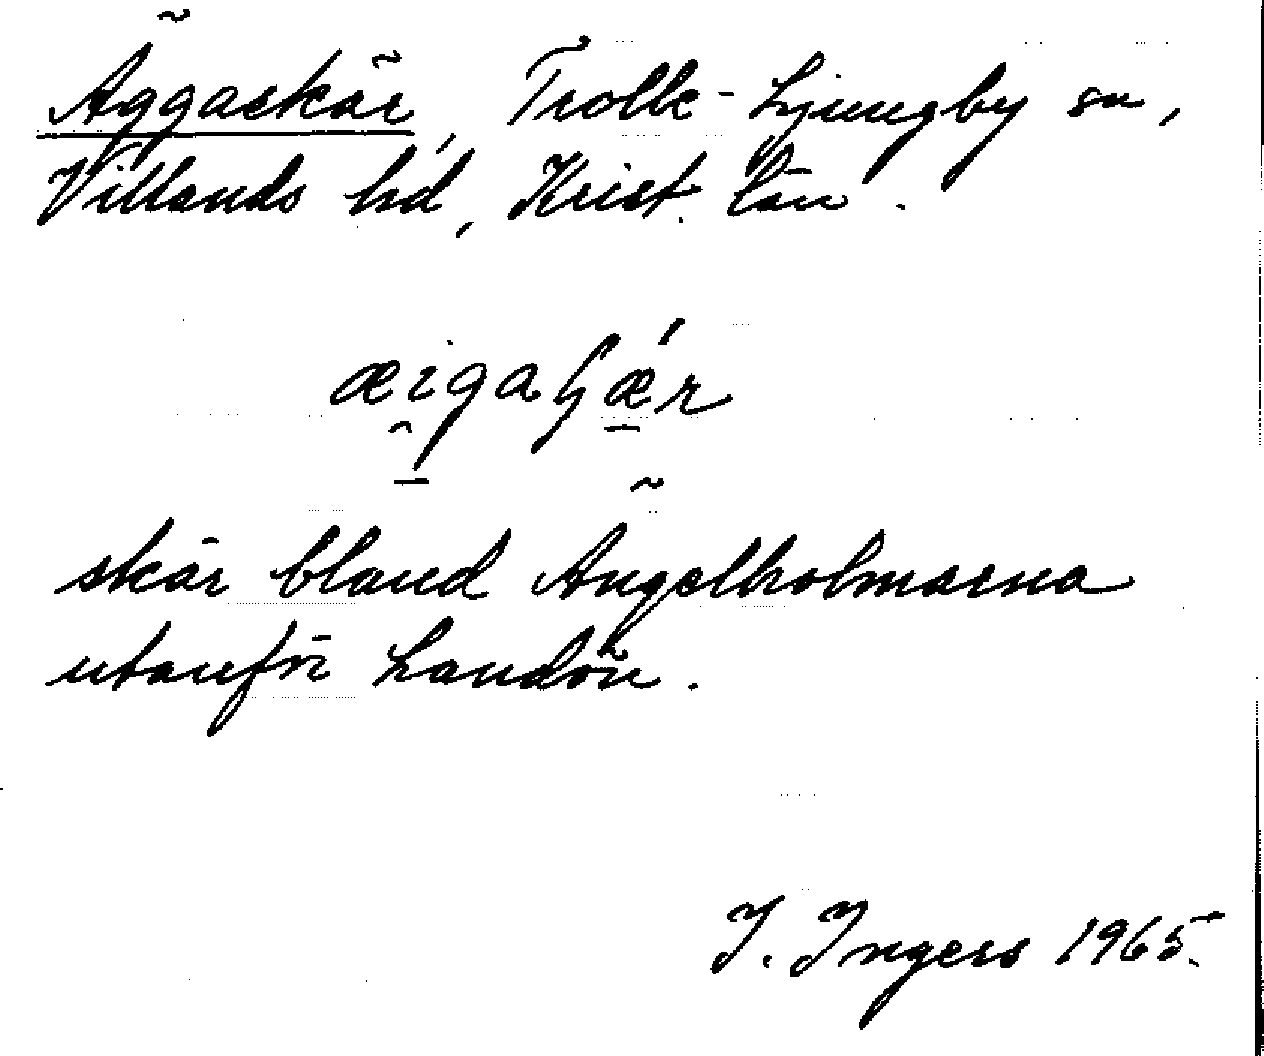 Äggaskär, Trolle-Ljungby sn,
Villands hd, Krist. län.
æigaʃǽr
skär bland Ängelholmarna
utanför Landön.
I. Ingers 1965.